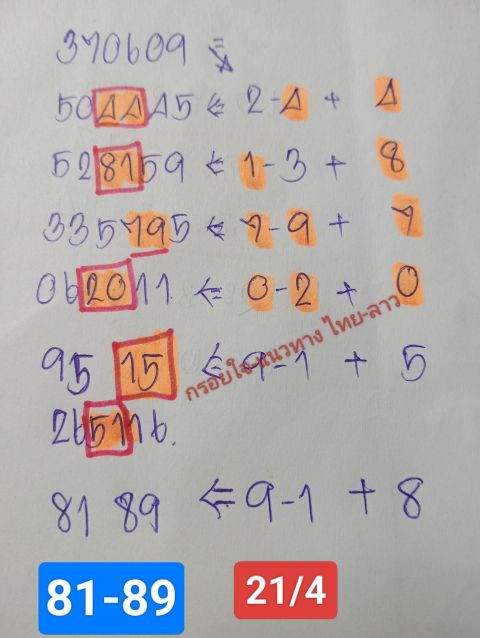 370609 =
504445 ⇐ 2-4 + 4
528159 ⇐ 1-3 + 8
335795 ⇐ 7-9 + 7
062011 ⇐ 0-2 + 0
95 15 ⇐ 9-1 + 5
กรอยใจ-แนวทาง ไทย-ลาว
265116.
81 89 ⇐ 9-1 + 8
81-89 21/4